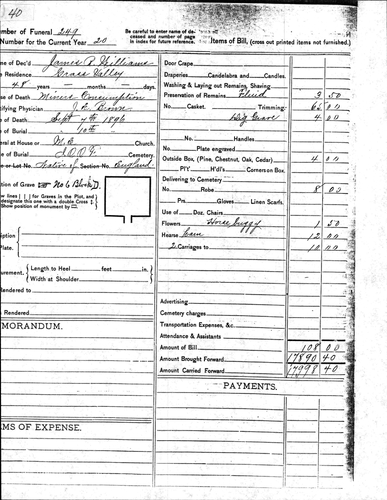 40
mber of Funeral 249
Number for the Current Year 20
Be careful to enter name of de-
ceased and number of page
in index for future reference.
Items of Bill, (cross out printed items not furnished.)
me of Dec'd James P. Williams
Residence Grass Valley
48 years months days.
e of Death Miners Consumption
ifying Physician
e of Death Sept 7th 1896
e of Burial 10th
eral at House or M.E. Church.
e of Burial I.O.O.F. Cemetery.
or Lot No. Native of Section No. England
tion of Grave No 6 Block D.
w lines ( ) for Graves in the Plot, and
designate this one with a double Cross
Show position of monument by
iption
Plate.
urement, Length to Heel feet in.
Width at Shoulder
endered to
Rendered
MORANDUM.
MS OF EXPENSE.
Door Crape
Draperies Candelabra and Candles.
Washing & Laying Out Remains, Shaving
Preservation of Remains Fluid 3 50
No. Casket. Trimming. 65 00
Dig Grave 4 00
No. Handles
Plate engraved
Outside Box, (Pine, Chestnut, Oak, Cedar) 4 00
P'l'y H'd'l's Corners on Box.
Delivering to Cemetery
No. Robe 8 00
Prs. Gloves Linen Scarfs.
Use of Doz. Chairs
Flowers Horse Buggy 1 50
Hearse 12 00
2 Carriages to 10 00
Advertising
Cemetery charges
Transportation Expenses, &c.
Attendance & Assistants
Amount of Bill 108 00
Amount Brought Forward 17890 40
Amount Carried Forward 17998 40
PAYMENTS.